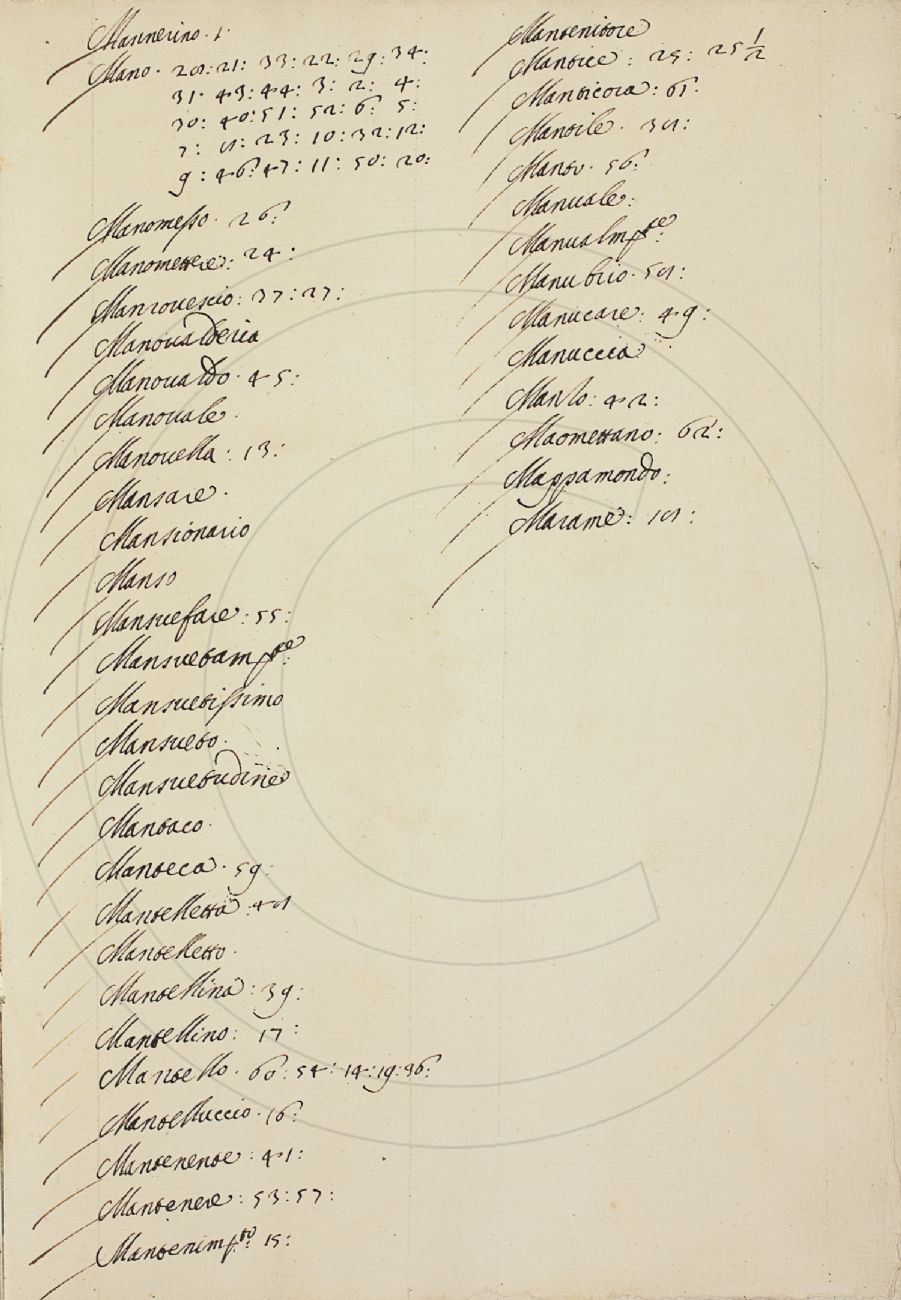 Mannerino · 1·
Mano · 28: 21: 33: 22: 29: 34:
31· 43: 44: 3: 2: 4:
30: 40: 51: 52: 6: 5:
7: 8: 23: 10: 32: 12:
9: 46: 47: 11: 50: 20:
Manomesso · 26:
Manomettere: 24:
Manrouescio: 37: 27:
Manoualderia
Manoualdo · 45:
Manouale ·
Manouella: 13:
Mansare ·
Mansionario
Manso
Mansuefare: 55:
Mansuetam.te:
Mansuetissimo
Mansueto ·
Mansuetudine
Mantaco ·
Manteca · 59:
Mantelletta: 48
Mantelletto ·
Mantellina: 39:
Mantellino: 17:
Mantello · 60: 54: 14: 19: 36:
Mantelluccio · 16:
Mantenente: 41:
Mantenere: 53: 57:
Mantenim.to: 15:
Mantenitore
Mantice: 25: 25 1/2
Manticora:
Mantile · 38:
Manto · 56:
Manuale:
Manualm.te:
Manubrio · 58:
Manucare: 49:
Manuccia
Manzo: 42:
Maomettano: 62:
Mappamondo:
Marame: 18: